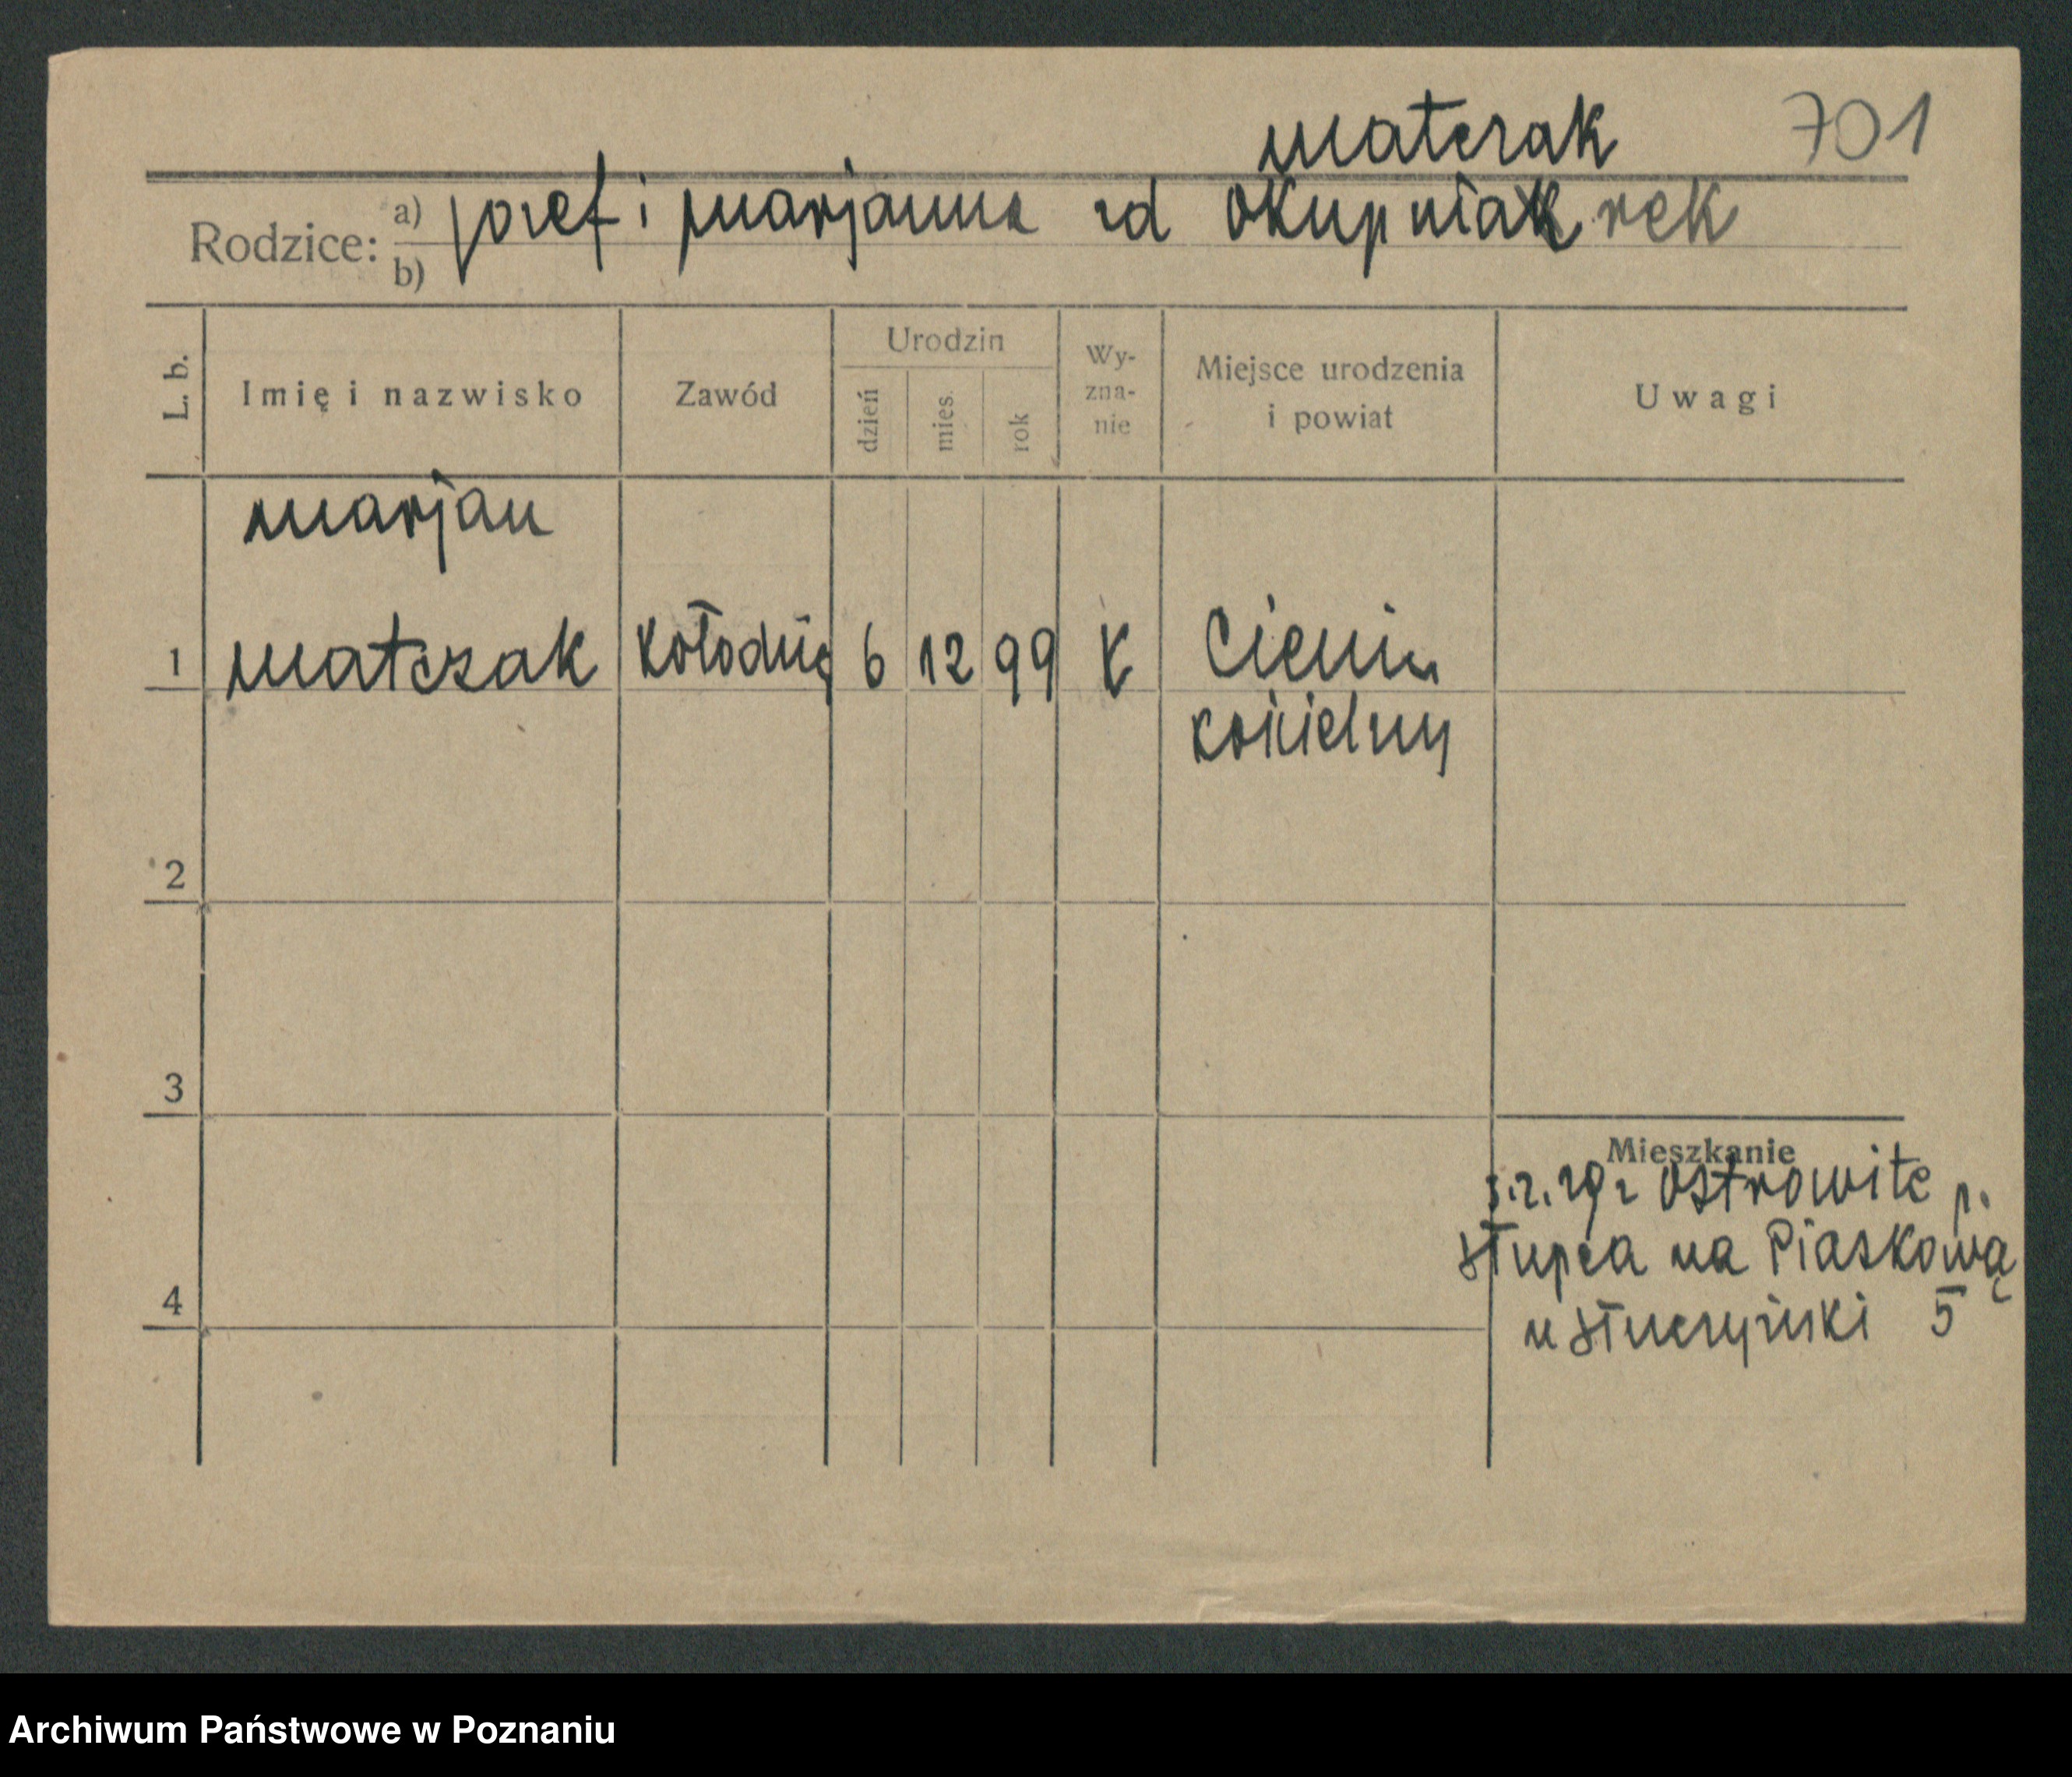 matczak 701
Rodzice: a) josef i marjanna zd okupniak rek
b)
L. b. Imię i nazwisko Zawód Urodzin dzień mies. rok Wy-zna-nie Miejsce urodzenia i powiat Uwagi
marjan
1 matczak kołodzij 6 12 99 K Cienin
kościelny
2
3
Mieszkanie
ostrowite p.
4 słupca na Piaskową
u 5
Archiwum Państwowe w Poznaniu